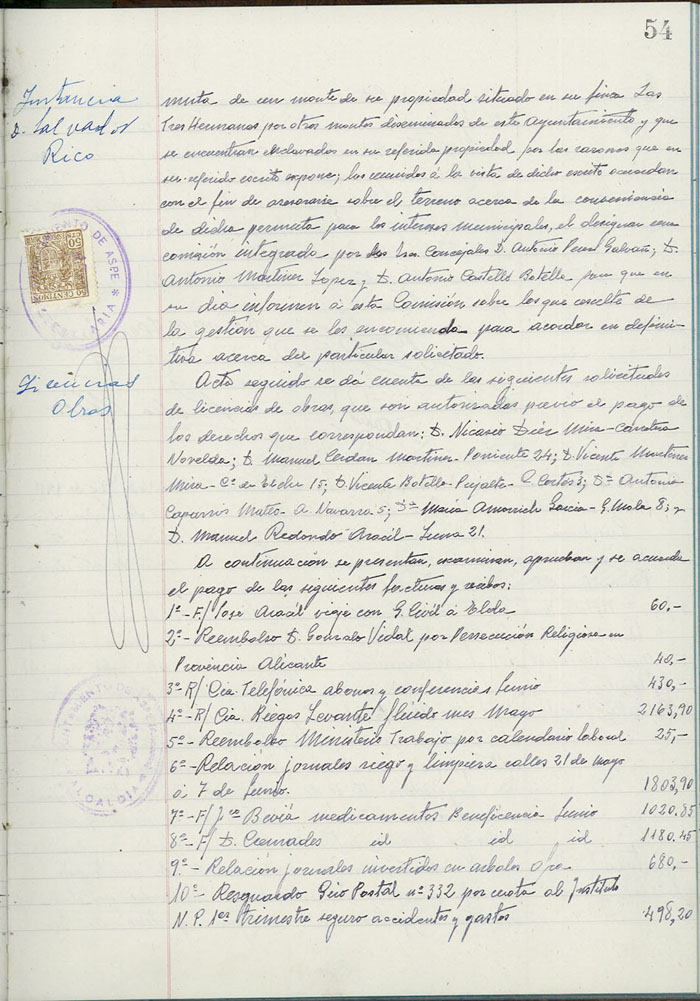 54
Instancia
D. Salvador
Rico
muta de un monte de su propiedad situado en su finca Las
Tres Hermanas por otros montes diseminados de este Ayuntamiento y que
se encuentran enclavados en su referida propiedad por las razones que en
su referido escrito expone; los reunidos á la vista de dicho escrito acuerdan
con el fin de asesorarse sobre el terreno acerca de la conveniencia
de dicha permuta para los intereses municipales, el designar una
comisión integrada por los Sres. Concejales D. Antonio Pérez Galvañ; D.
Antonio Martínez López y D. Antonio Castelló Botella para que en
su dia informen á esta Comisión sobre lo que resulte de
la gestión que se les encomienda para acordar en defini-
tiva acerca del particular solicitado.
Licencias
Obras
Acto seguido se dá cuenta de las siguientes solicitudes
de licencias de obras, que son autorizadas previo el pago de
los derechos que correspondan: D. Nicasio Díez Mira - Carretera
Novelda; D. Manuel Cerdan Martinez - Poniente 24; D. Vicente Martinez
Mira - Cº de Elche 15; D. Vicente Botella - C. Cortés 3; Dª Antonia
Caparrós Mateo - A. Navarro 5; Dª María Amorrich Garcia - G. Mola 8; y
D. Manuel Redondo Aracil - Luna 21.
A continuación se presentan, examinan, aprueban y se acuerda
el pago de las siguientes facturas y recibos:
1º - F/ José Aracil viaje con G. Civil á Elda 60.-
2º - Reembolso D. Gonzalo Vidal por Persecución Religiosa en
Provincia Alicante 40.-
3º R/ Cia. Telefónica abonos y conferencias Junio 430,-
4º - R/ Cia. Riegos Levante flúido mes Mayo 2163,90
5º - Reembolso Ministerio Trabajo por calendario laboral 25,-
6º - Relación jornales riego y limpieza calles 21 de Mayo
á 7 de Junio. 1803,90
7º - F/ Fco Beviá medicamentos Beneficencia Junio 1020.85
8º - F/ D. Cremades id id id 1180.45
9º - Relación jornales invertidos en arboles 680,-
10º - Resguardo Giro Postal nº 332 por cuota al Instituto
N. P. 1er trimestre seguro accidentes y gastos 498,20
50 CENTIMOS
AYUNTAMIENTO DE ASPE
SECRETARIA
AYUNTAMIENTO DE ASPE
ALCALDIA